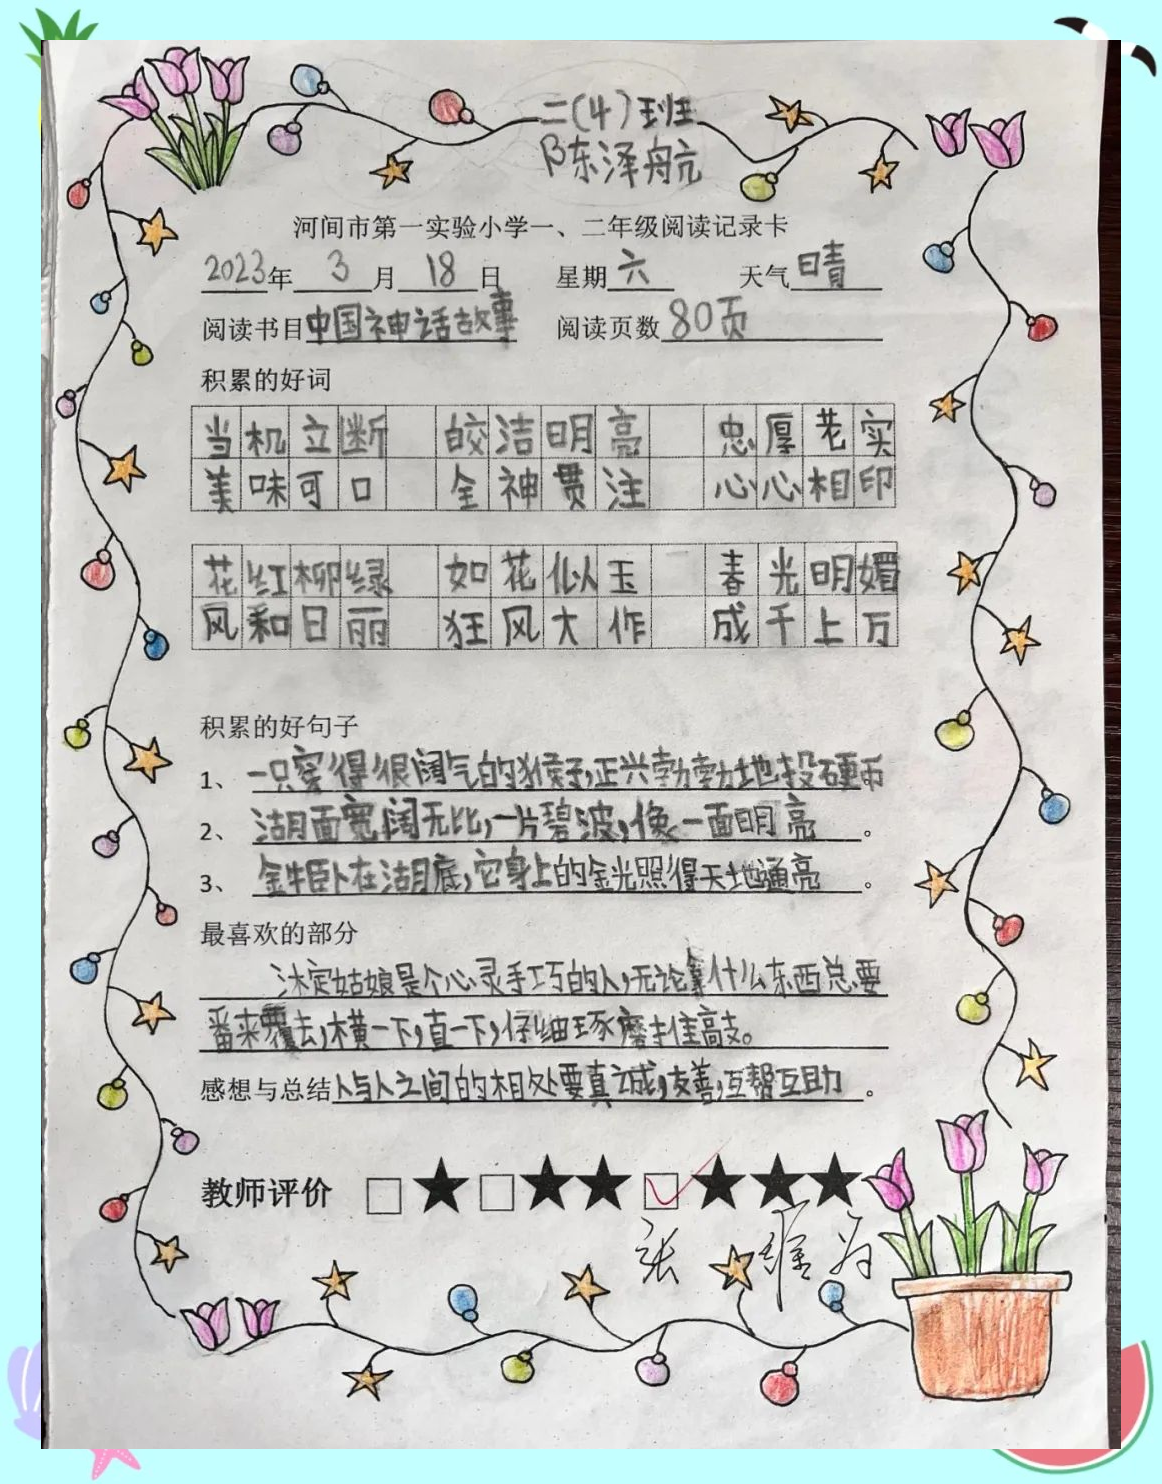 二(4)班
陈泽航
河间市第一实验小学一、二年级阅读记录卡
2023年 3 月 18 日 星期六 天气晴
阅读书目中国神话故事 阅读页数80页
积累的好词
当机立断 皎洁明亮 忠厚老实
美味可口 全神贯注 心心相印
花红柳绿 如花似玉 春光明媚
风和日丽 狂风大作 成千上万
积累的好句子
1、一只穿得很阔气的猴子,正兴勃勃地投硬币
2、湖面宽阔无比,一片碧波,像一面明亮。
3、金牛卧在湖底,它身上的金光照得天地通亮。
最喜欢的部分
姑娘是个心灵手巧的人,无论拿什么东西总要
番来覆去,横一下,直一下,仔细琢磨
感想与总结人与人之间的相处要真诚,友善,互帮互助。
教师评价 □★□★★☑★★★
张